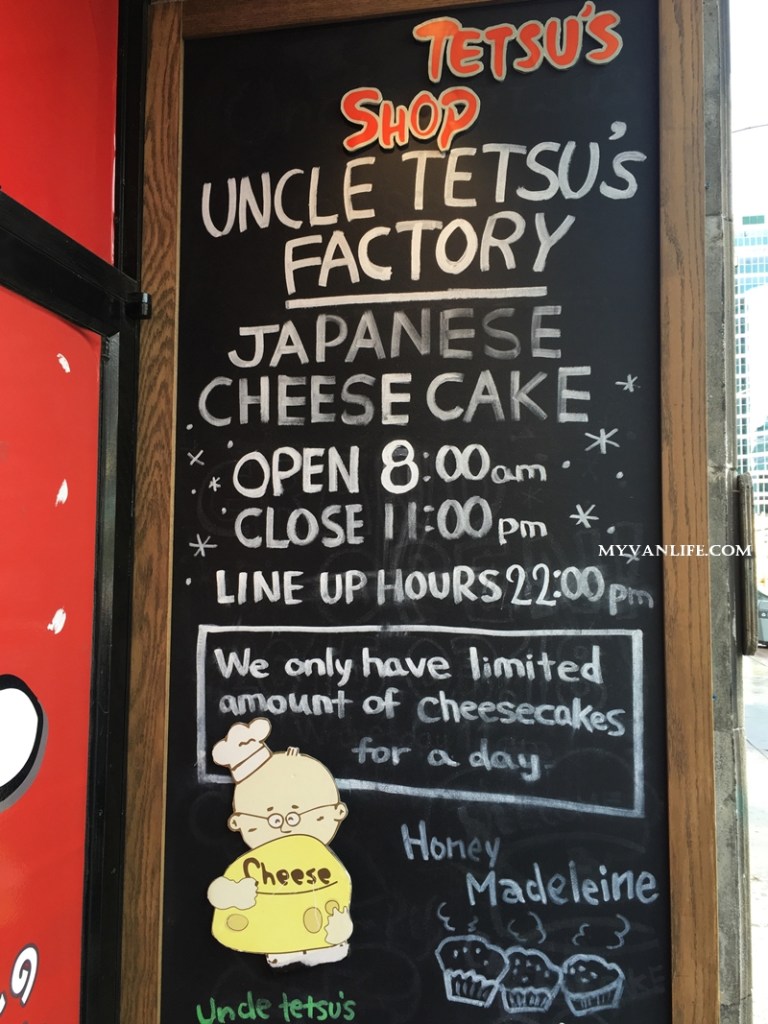 TETSU'S
SHOP
UNCLE TETSU'S
FACTORY
JAPANESE
CHEESE CAKE
OPEN 8:00am
CLOSE 11:00pm
MYVANLIFE.COM
LINE UP HOURS 22:00pm
We only have limited
amount of cheesecakes
for a day
Honey
Madeleine
Cheese
Uncle tetsu's